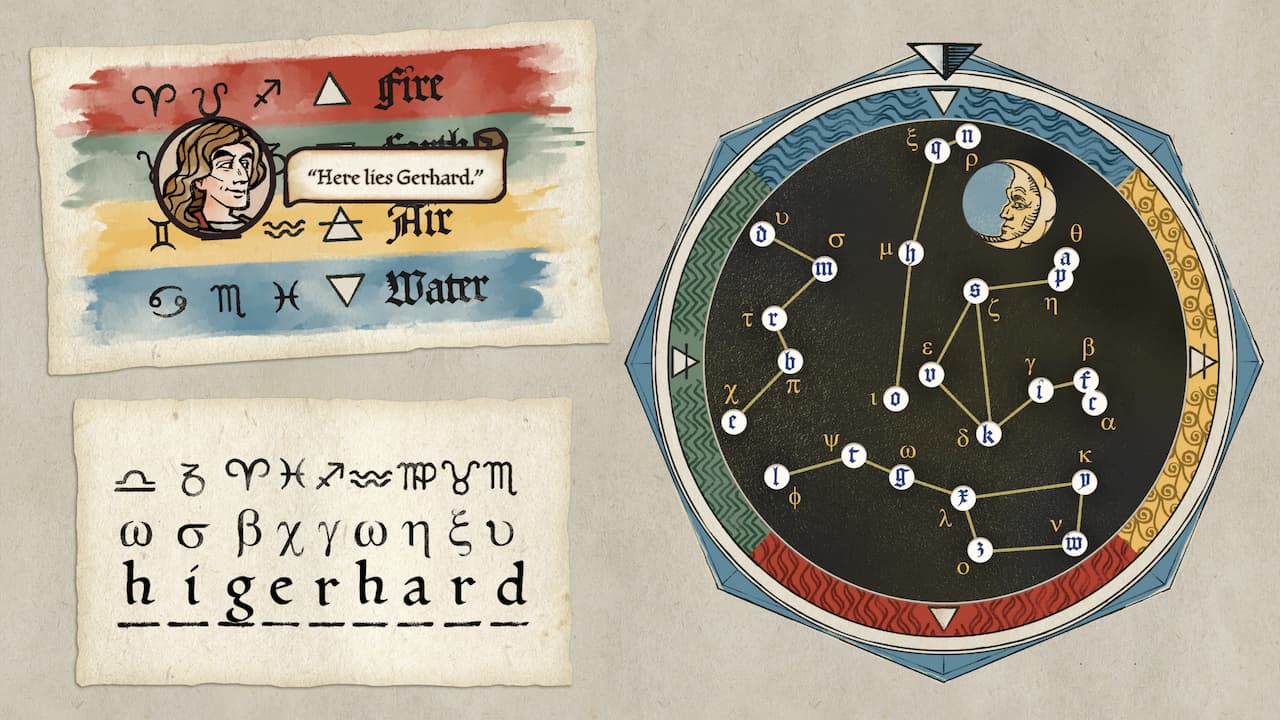 ♈ ♌ ♐ △ Fire
“Here lies Gerhard.”
♊ ♒ 🜁 Air
♋ ♏ ♓ ▽ Water
♎ ♑ ♈ ♓ ♐ ♒ ♍ ♉ ♏
ω σ β χ γ ω η ξ υ
h i g e r h a r d
ξ q n ρ
υ d
σ m
μ h
θ a
p η
s ζ
τ r
ε v
b π
β f
γ i
c α
ι o
χ e
δ k
ψ t
ω g
κ y
l φ
λ x
ν w
ο z